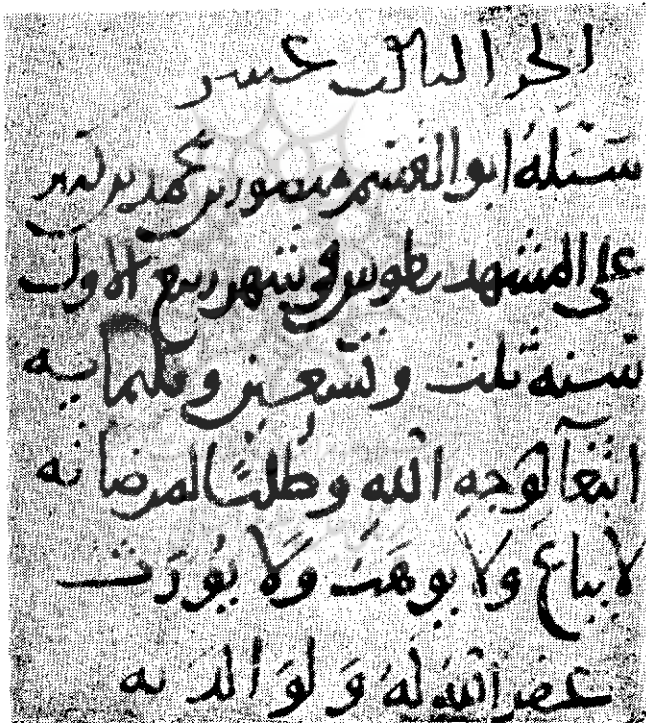 الجز الثالث عشر
سبله ابو القسم منصور بن محمد بن كثير
على المشهد بطوس في شهر ربيع الاول
سنة ثلث وتسعين وثلثمايه
ابتغا لوجه الله وطلبا لمرضاته
لا يباع ولا يوهب ولا يورث
غفر الله له ولوالديه